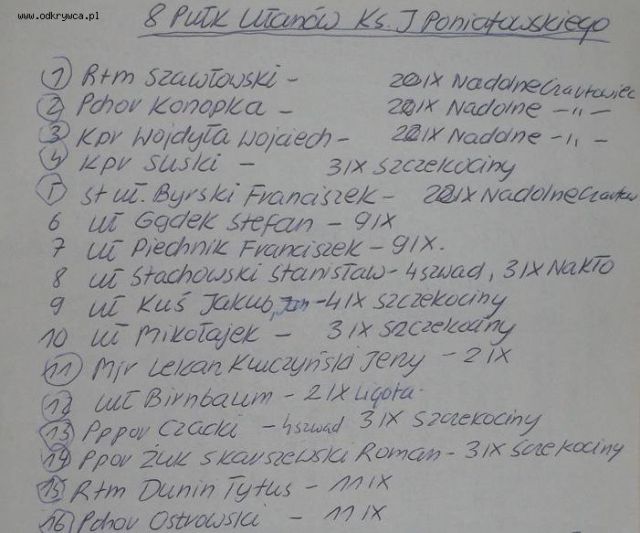 www.odkrywca.pl
8 Pułk Ułanów Ks. J Poniatowskiego
1 Rtm Szawłowski - 20 IX Nadolne Czartowiec
2 Pchor Konopka - 20 IX Nadolne -„-
3 Kpr Wojdyła Wojciech - 22 IX Nadolne -„-
4 Kpr Suski - 3 IX Szczekociny
5 St uł. Byrski Franciszek - 20 IX Nadolne Czartow
6 uł Gądek Stefan - 9 IX
7 uł Piechnik Franciszek - 9 IX.
8 uł Stachowski Stanisław - 4 szwad, 3 IX Nakło
9 uł Kuś Jakub, Jan - 4 IX Szczekociny
10 uł Mikołajek - 3 IX Szczekociny
11 Mjr lekarz Kluczyński Jerzy - 2 IX
12 uł Birnbaum - 2 IX Ligota
13 Pppor Czacki - 4 szwad 3 IX Szczekociny
14 Ppor Żuk Skarszewski Roman - 3 IX Szczekociny
15 Rtm Dunin Tytus - 11 IX
16 Pchor Ostrowski - 11 IX